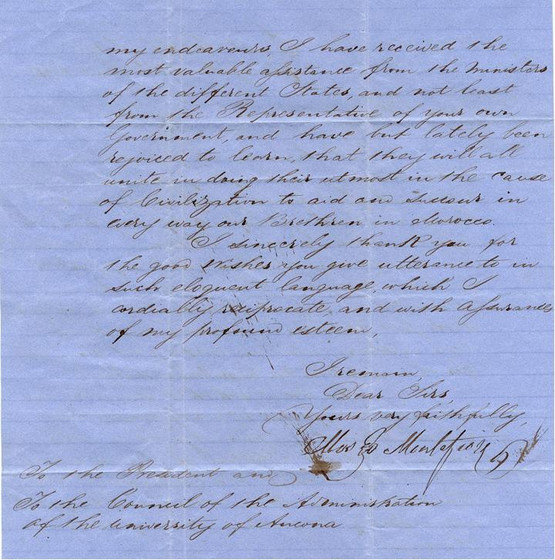 my endeavours I have received the
most valuable assistance from the Ministers
of the different States, and not least
from the Representative of your own
Government, and have but lately been
rejoiced to learn, that they will all
unite in doing their utmost in the cause
of Civilization to aid and succour in
every way our Brethren in Morocco.
I sincerely thank you for
the good Wishes you give utterance to in
such eloquent language, which I
cordially reciprocate, and with assurances
of my profound esteem,
I remain,
Dear Sirs,
Yours very faithfully,
Moses Montefiore
To the President and
To the Council of the Administration
of the University of Ancona